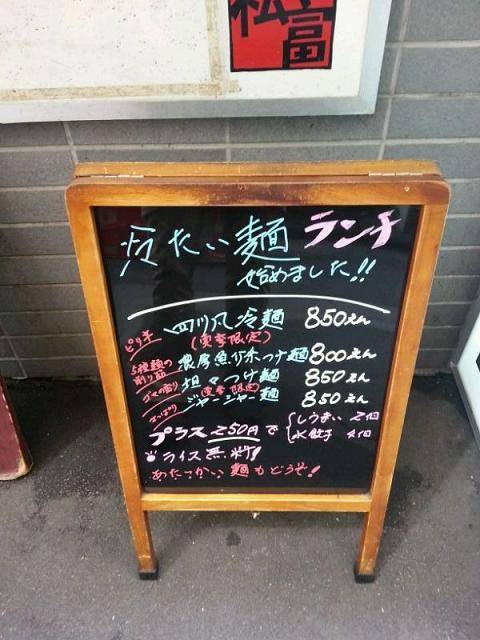 松富
冷たい麺 ランチ
始めました!!
ピリ辛 四川風冷麺 850えん
(夏季限定)
5種類の削り節 濃厚魚介系つけ麺 800えん
ゴマの香り 坦々つけ麺 850えん
(夏季限定)
さっぱり ジャージャー麺 850えん
プラス250円で {しうまい 2個
水餃子 4個
ライス無料!
あたたかい麺もどうぞ!